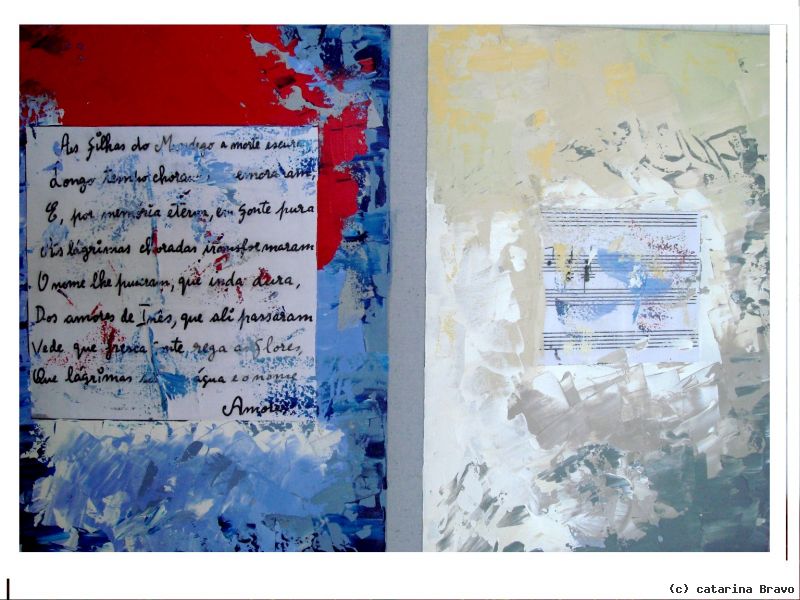 As filhas do Mondego a morte escura
Longo tempo chora emoraram,
E, por memória eterna, em fonte pura
as lágrimas choradas transformaram
O nome lhe puseram, que inda dura,
Dos amores de Inês, que ali passaram
Vede que fresca fonte rega as flores,
Que lágrimas água e o nome
Amores
(c) catarina Bravo